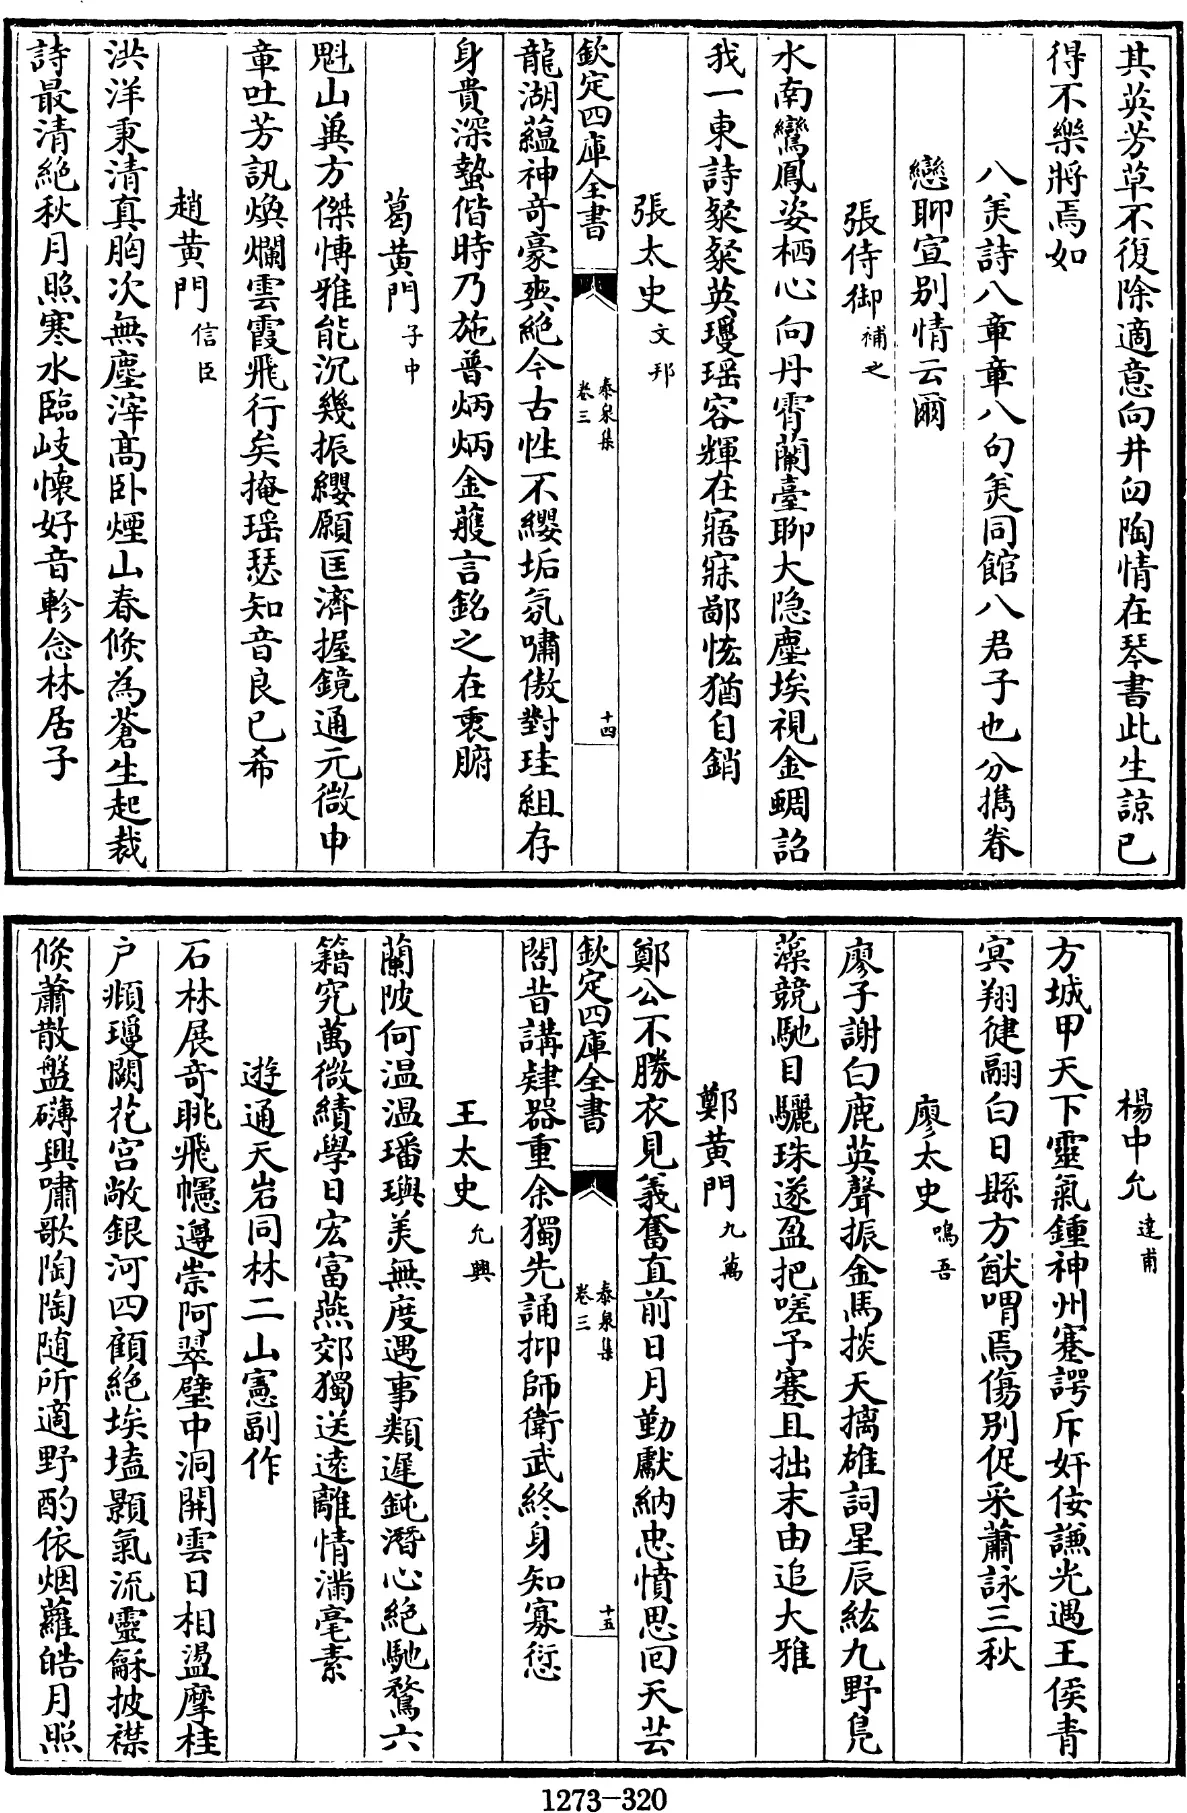 其英芳草不復除適意向井臼陶情在琴書此生諒已
得不樂將焉如
八美詩八章章八句美同館八君子也分攜眷
戀聊宣别情云爾
張侍御補之
水南鸞鳳姿栖心向丹霄蘭臺聊大隐塵埃視金蜩詒
我一東詩粲粲英瓊瑶容輝在寤寐鄙恡猶自銷
張太史文邦
欽定四庫全書
泰泉集
卷三
十四
龍湖藴神奇豪爽絶今古性不纓垢氛嘯傲對珪組存
身貴深蟄偕時乃施普炳炳金蘐言銘之在衷腑
葛黄門子中
魁山巽方傑愽雅能沉幾振纓願匡濟握鏡通元微申
章吐芳訊煥爛雲霞飛行矣掩瑶瑟知音良已希
趙黄門信臣
洪洋秉清真胸次無塵滓髙卧煙山春倐為蒼生起裁
詩最清絶秋月照寒水臨岐懷好音軫念林居子
楊中允達甫
方城甲天下靈氣鍾神州蹇諤斥奸佞謙光遇王侯青
冥翔健翮白日縣方猷喟焉傷别促采蕭詠三秋
廖太史鳴吾
廖子謝白鹿英聲振金馬掞天摛雄詞星辰紘九野鳧
藻競馳目驪珠遂盈把嗟予蹇且拙末由追大雅
鄭黄門九萬
鄭公不勝衣見義奮直前日月勤獻納忠憤思回天芸
欽定四庫全書
泰泉集
卷三
十五
閣昔講肄器重余獨先誦抑師衛武終身知寡愆
王太史允興
蘭陂何温温璠璵美無度遇事類遲鈍潛心絶馳騖六
籍究萬微績學日宏富燕郊獨送逺離情滿毫素
遊通天岩同林二山憲副作
石林展奇眺飛幰遵崇阿翠壁中洞開雲日相盪摩桂
户頫瓊闕花宫敞銀河四顧絶埃壒顥氣流靈龢披襟
倐蕭散盤礴興嘯歌陶陶随所適野酌依烟蘿皓月照
1273-320